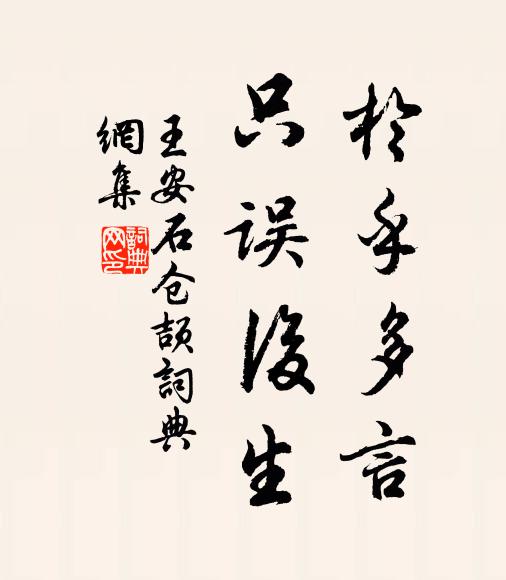 於乎多言
只误後生
王安石仓颉詞典
網集
詞典网印